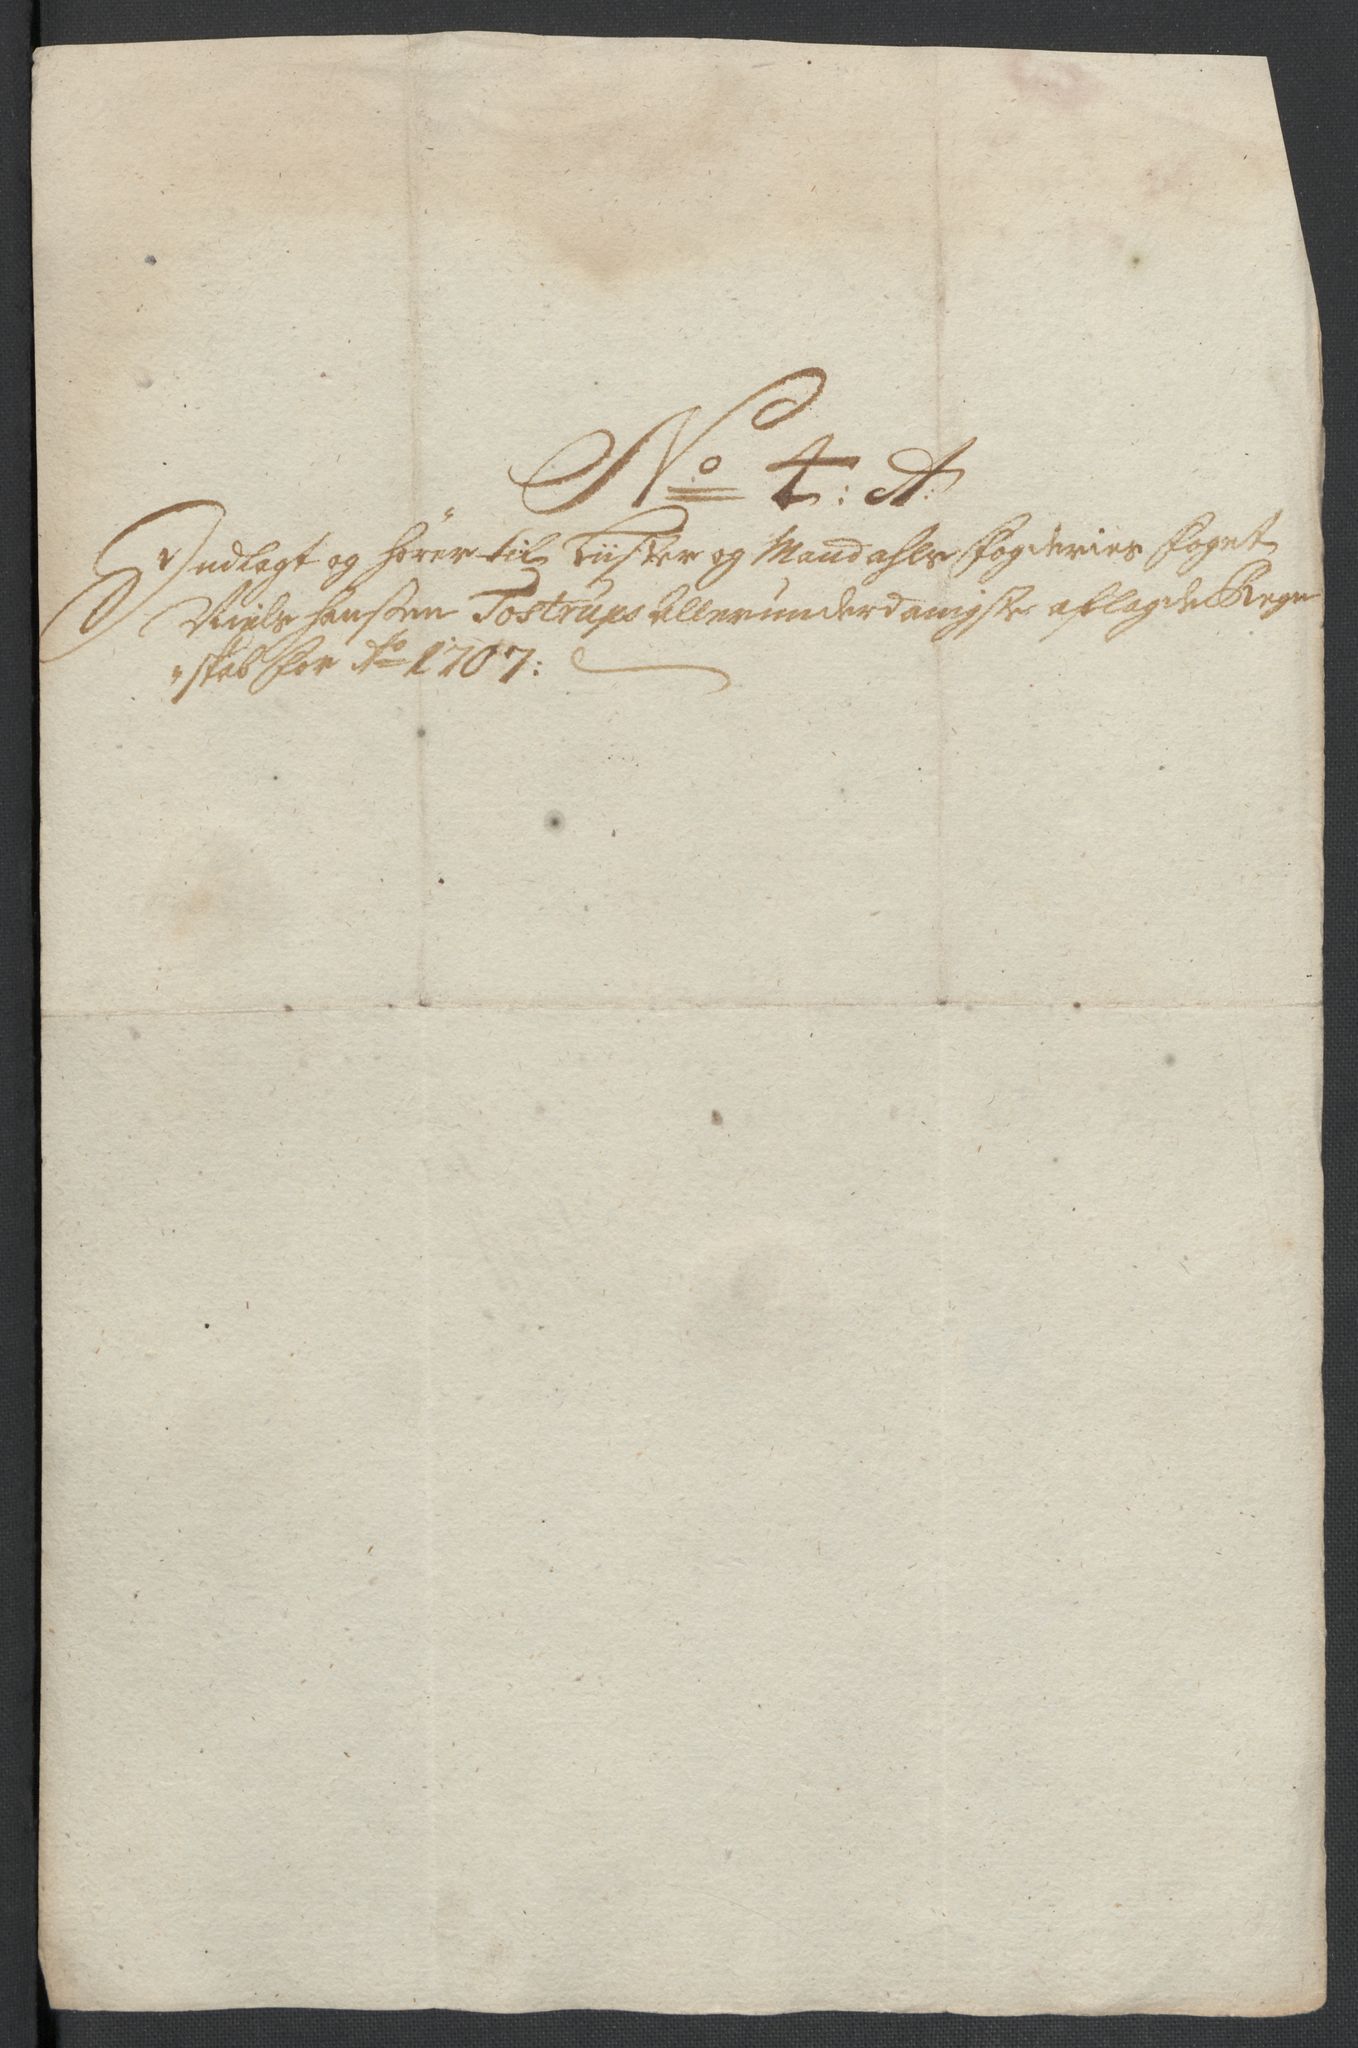 No 4: A:
Indlagt og hörer til Lister og Mandahls Fogderies Foget
Niels Hanssen Tostrups Allerunderdanigste aflagde Regn
"skab for Ao 1707: